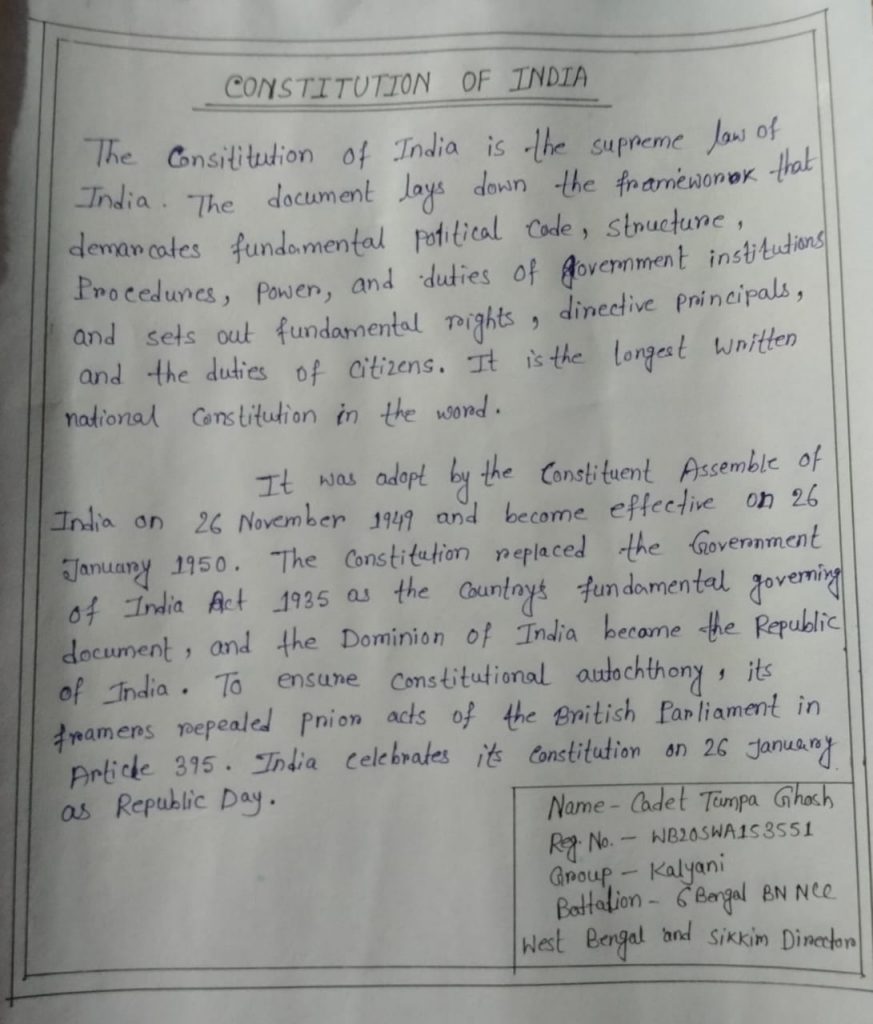 CONSTITUTION OF INDIA
The Consititution of India is the supreme law of
India. The document lays down the framework that
demarcates fundamental political Code, structure,
Procedures, power, and duties of government institutions
and sets out fundamental rights, directive principals,
and the duties of citizens. It is the longest written
national constitution in the word.
It was adopt by the Constituent Assemble of
India on 26 November 1949 and become effective on 26
January 1950. The constitution replaced the Government
of India Act 1935 as the country's fundamental governing
document, and the Dominion of India became the Republic
of India. To ensure constitutional autochthony, its
framers repealed prior acts of the British Parliament in
Article 395. India celebrates its constitution on 26 January
as Republic Day.
Name - Cadet Tumpa Ghosh
Reg. No. - WB20SWA153551
Group - Kalyani
Battalion - 6 Bengal BN NCC
West Bengal and Sikkim Director